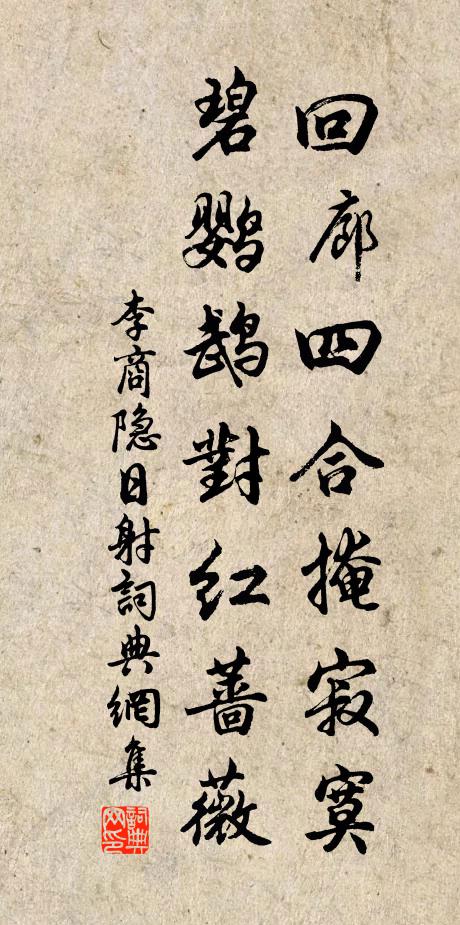 回廊四合掩寂寞
碧鹦鹉對红薔薇
李商隐日射詞典網集
詞典网印